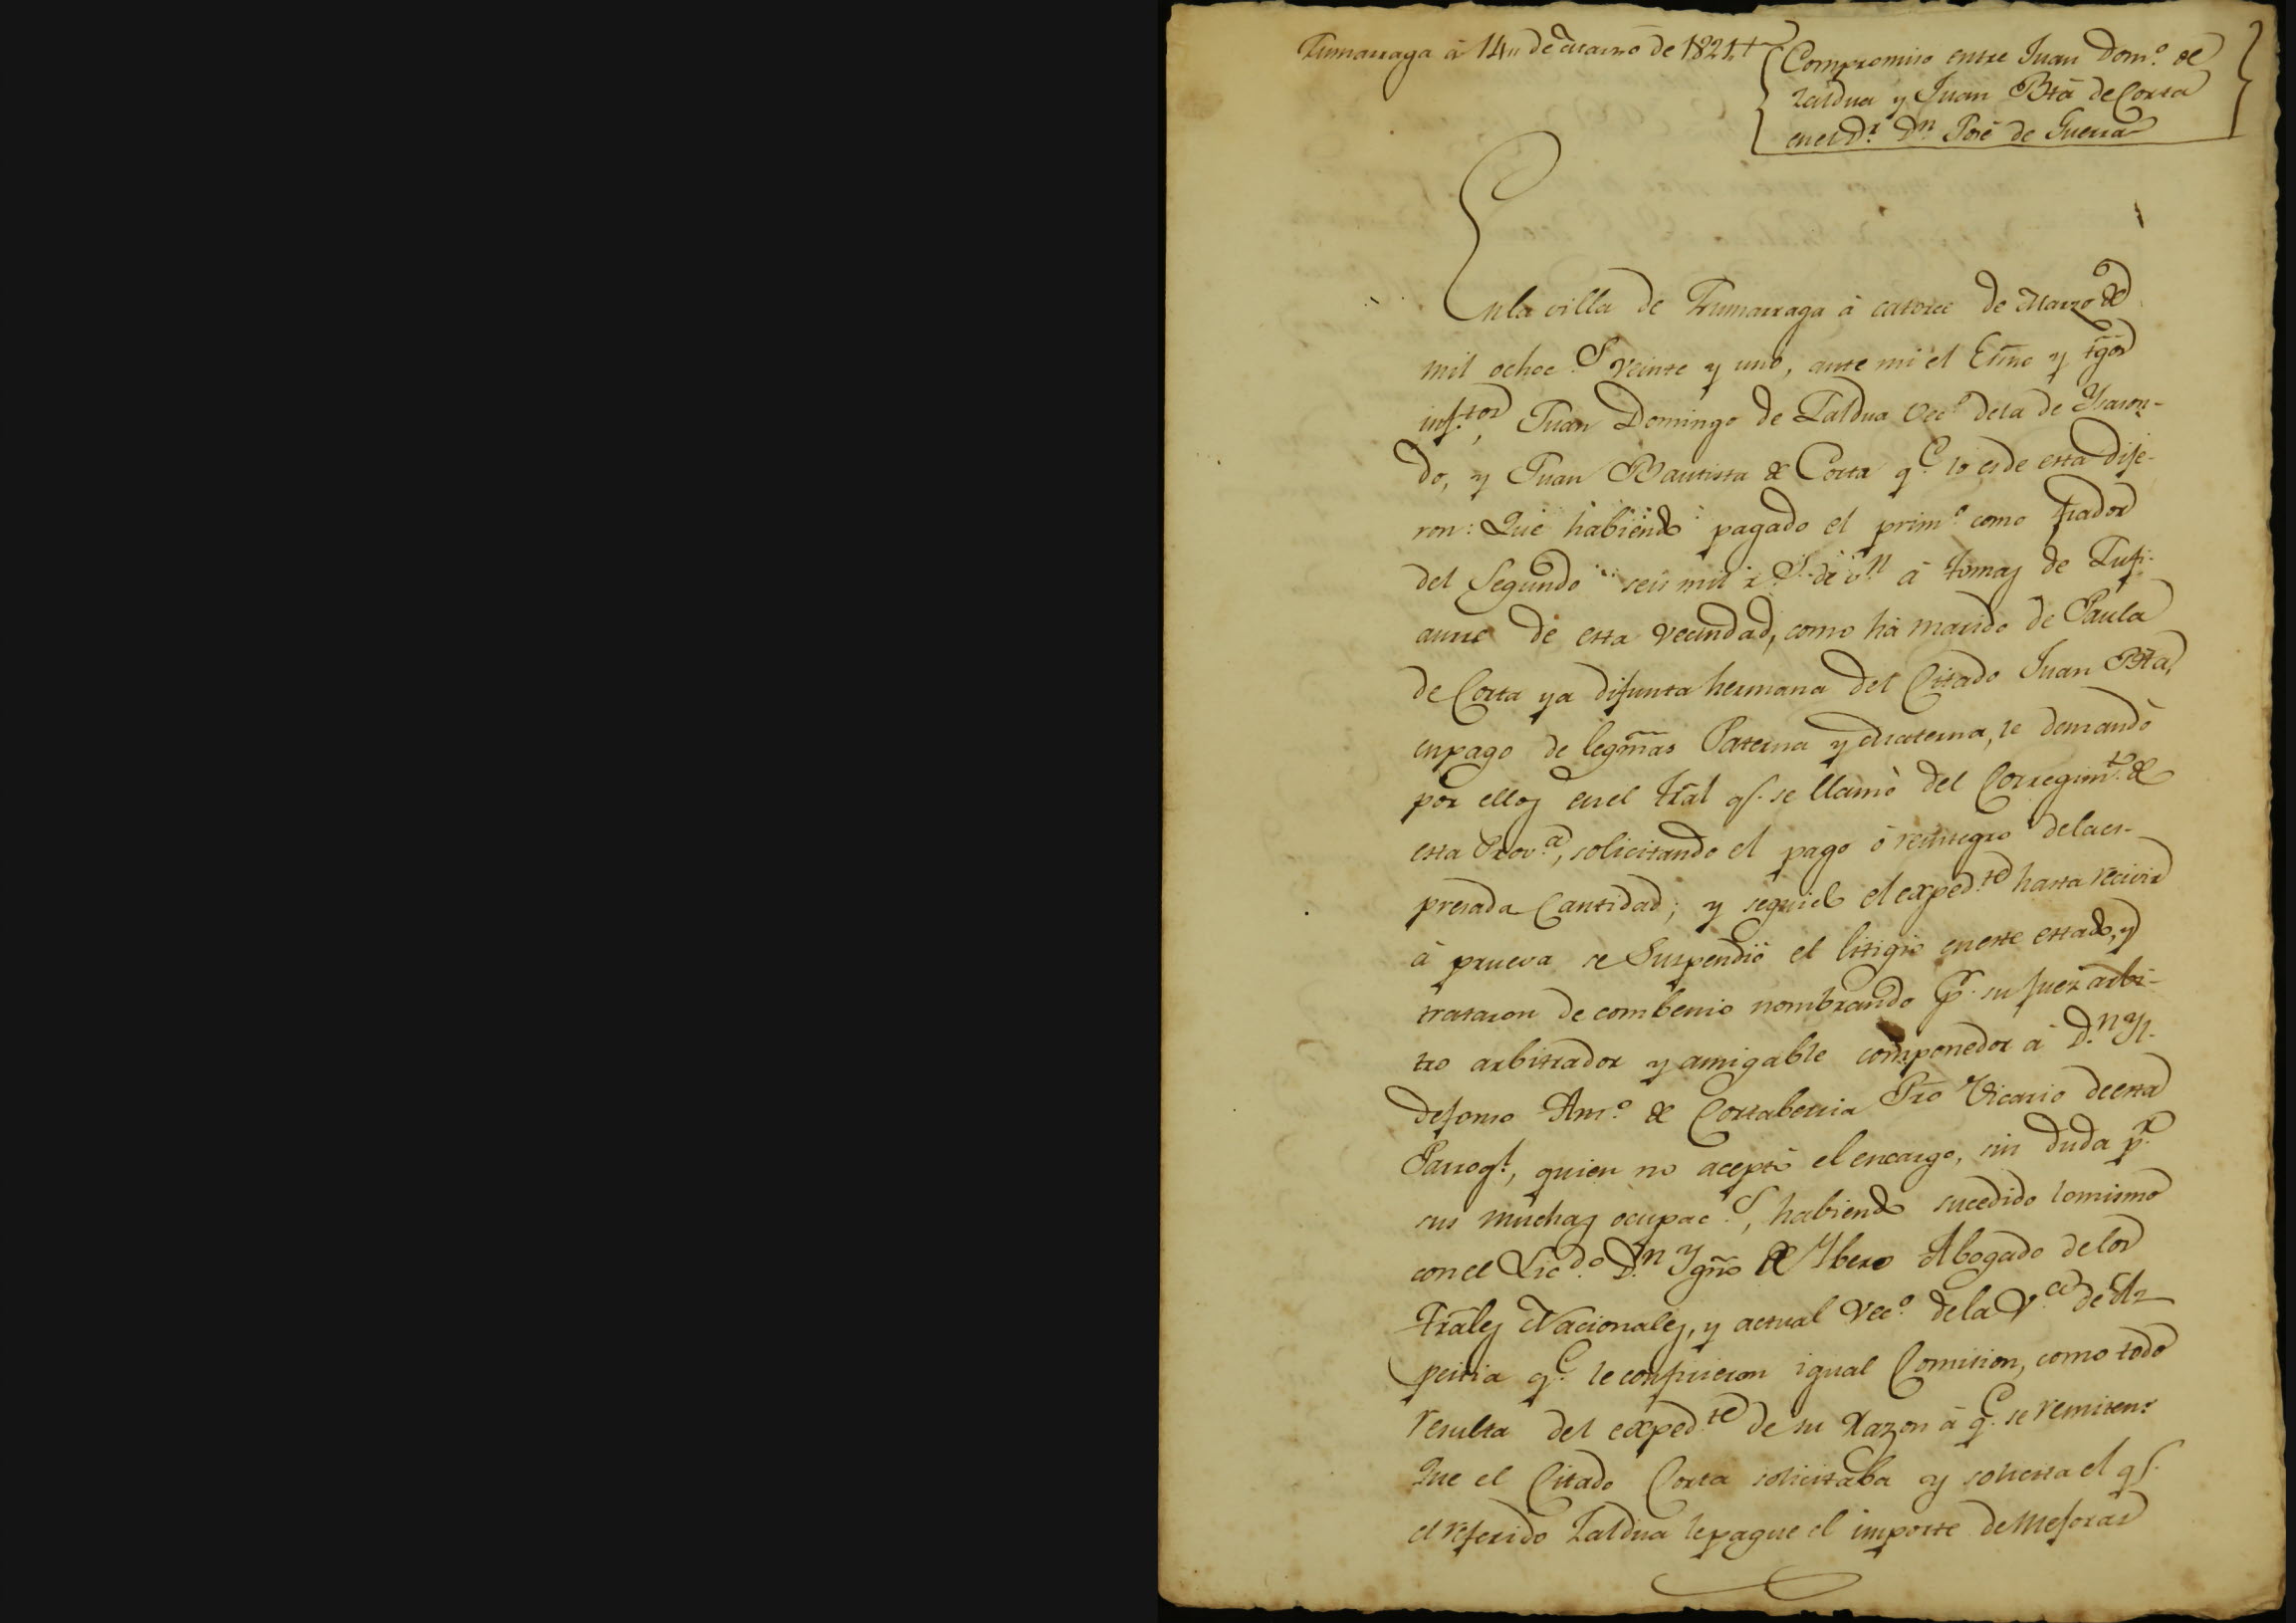 Zumarraga á 14 de Marzo de 1821
Compromiso entre Juan Dom.º de
Zaldua y Juan Bta de Corta
en el D.r D.n José de Guerra
En la villa de Zumarraga á catorce de Marzo de
mil ochoc.s veinte y uno, ante mi el Esno y tgos
inf.tos, Juan Domingo de Zaldua Vec.º de la de Ysason-
do, y Juan Bautista de Corta q.e lo es de esta dije-
ron: Que habiendo pagado el prim.º como fiador
del Segundo seis mil r.s de v.n á Tomas de Zufi-
aurre de esta vecindad, como há marido de Paula
de Corta ya difunta hermana del Citado Juan Bta,
en pago de legmas Paterna y Materna, le demandó
por ellos en el Tral q.e se llamó del Corregim.to de
esta Prov.a, solicitando el pago ó reintegro de la es-
presada Cantidad; y seguido el exped.te hasta recivir
á prueva se Suspendió el litigio en este estado, y
trataron de combenio nombrando p.r su juez arbi-
tro arbitrador y amigable componedor á D.n Yl-
defonso Ant.º de Cortaberria Pro Vicario de esta
Parroq.l, quien no aceptó el encargo, sin duda p.r
sus muchas ocupac.s, habiendo sucedido lo mismo
con el Lic.do D.n Ygno de Ybero Abogado de los
Trales Nacionales, y actual Vec.º de la V.a de Az
peitia q.e le confirieron igual Comision, como todo
resulta del exped.te de su razon á q.e se remiten:
Que el Citado Corta solicitaba y solicita el q.e
el referido Zaldua le pague el importe de Mejoras